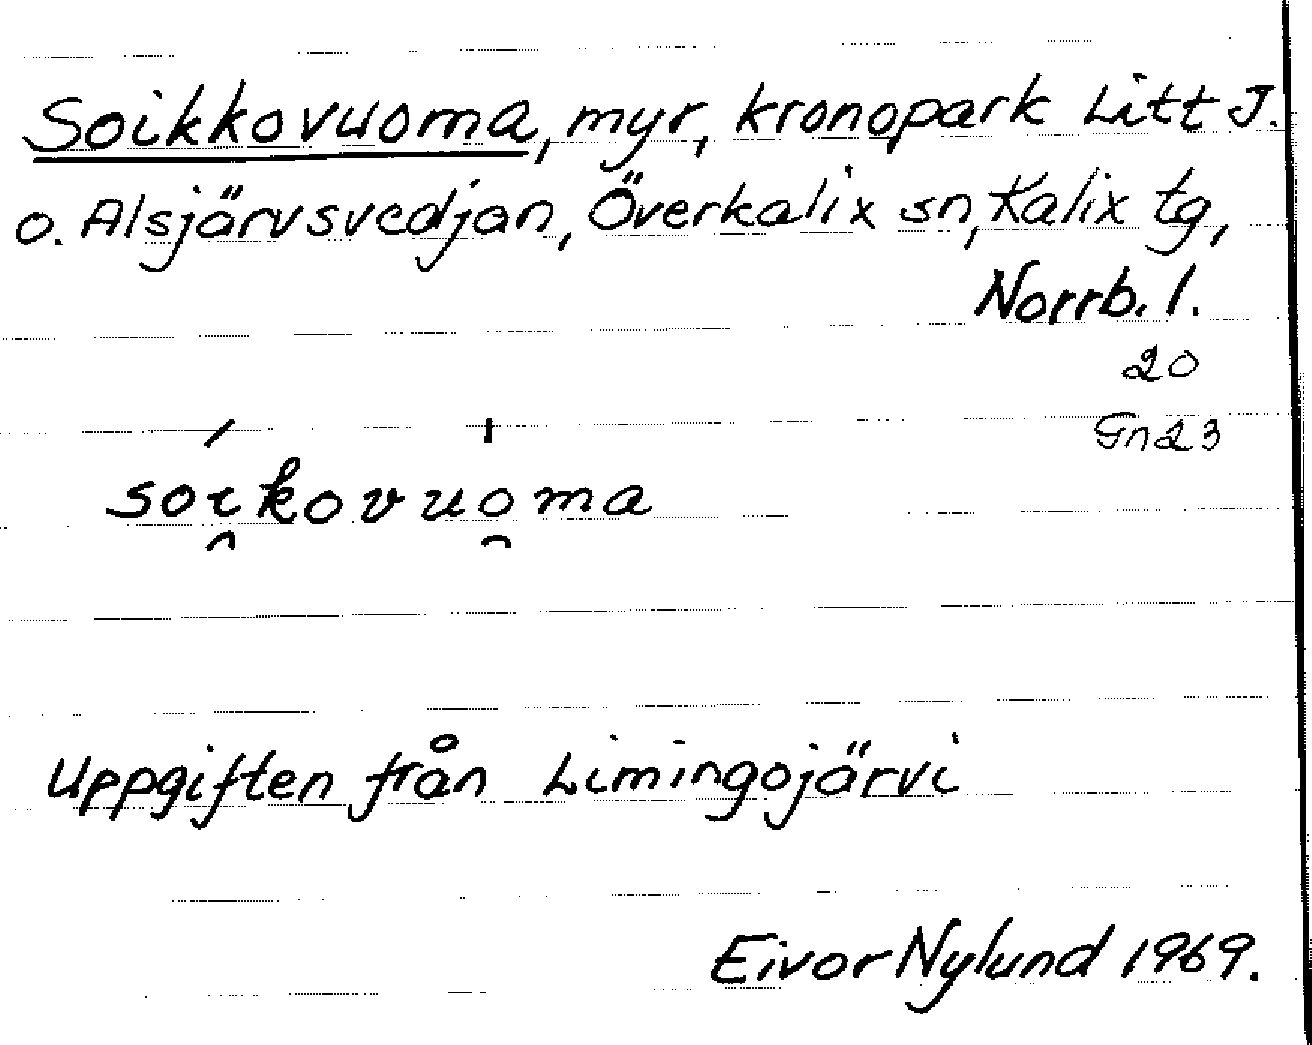 Soikkovuoma, myr, kronopark Litt J.
o. Alsjärvsvedjan, Överkalix sn, Kalix tg,
Norrb. l.
20
Gn23
soikovuoma
Uppgiften från Limingojärvi
Eivor Nylund 1969.